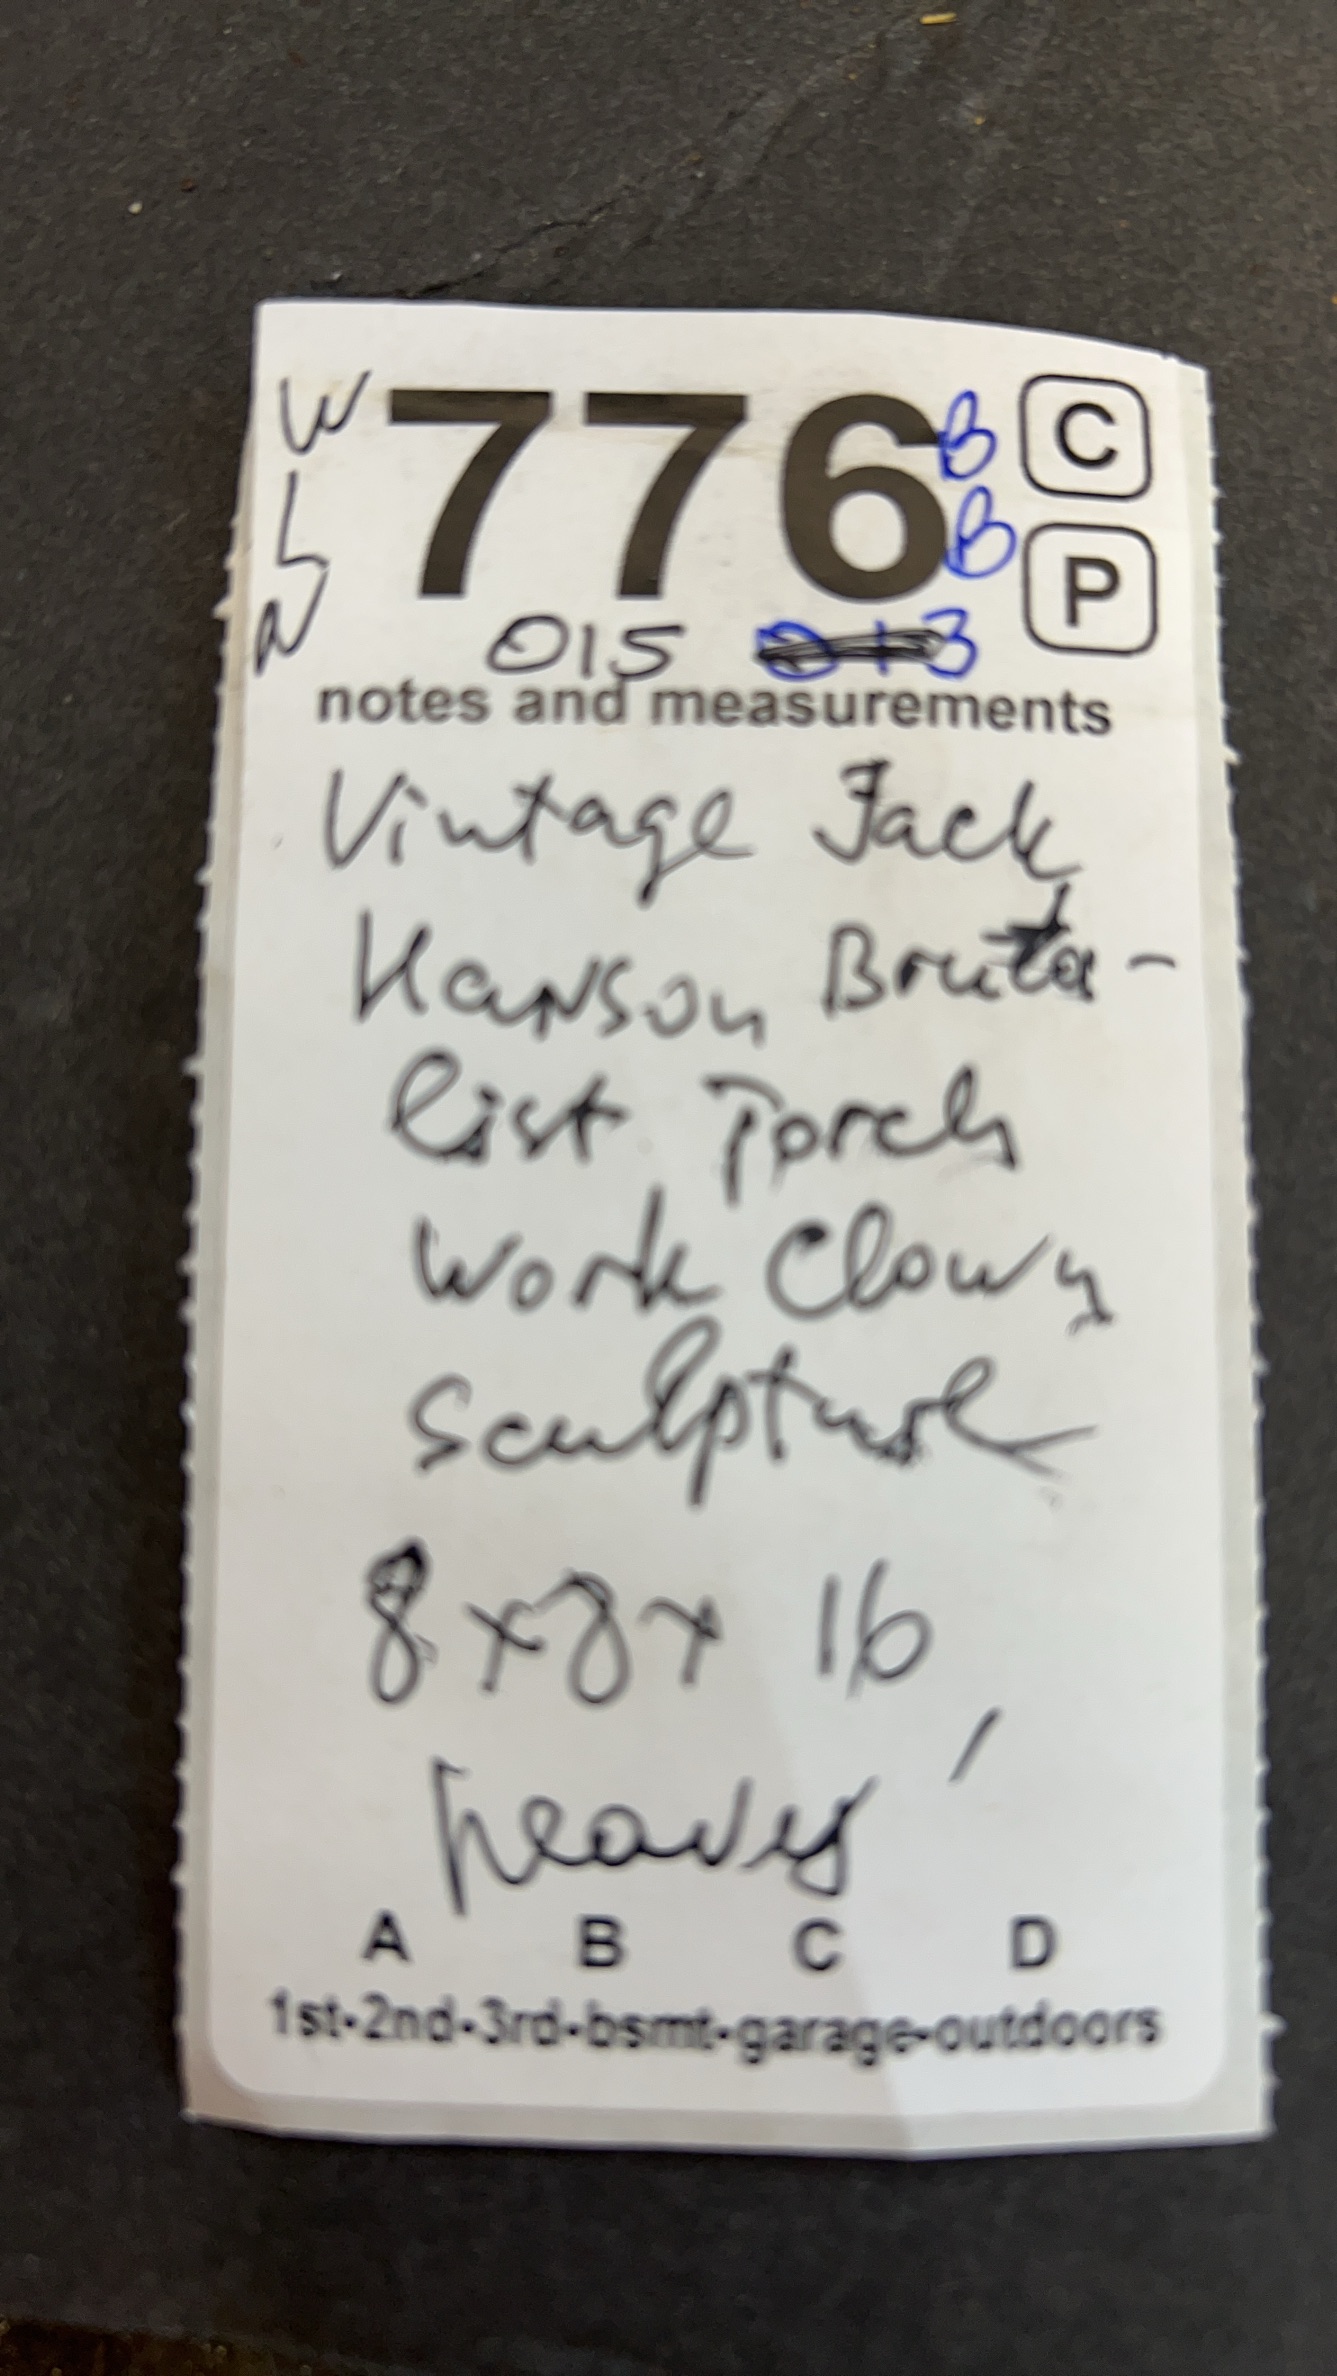 W 776 B C
L B P
5
N
015 013
notes and measurements
Vintage Jack
Hanson Bruta-
list Torch
Work Clown
Sculpture
8x8x 16,
heavy
A B C D
1st-2nd-3rd-bsmt-garage-outdoors